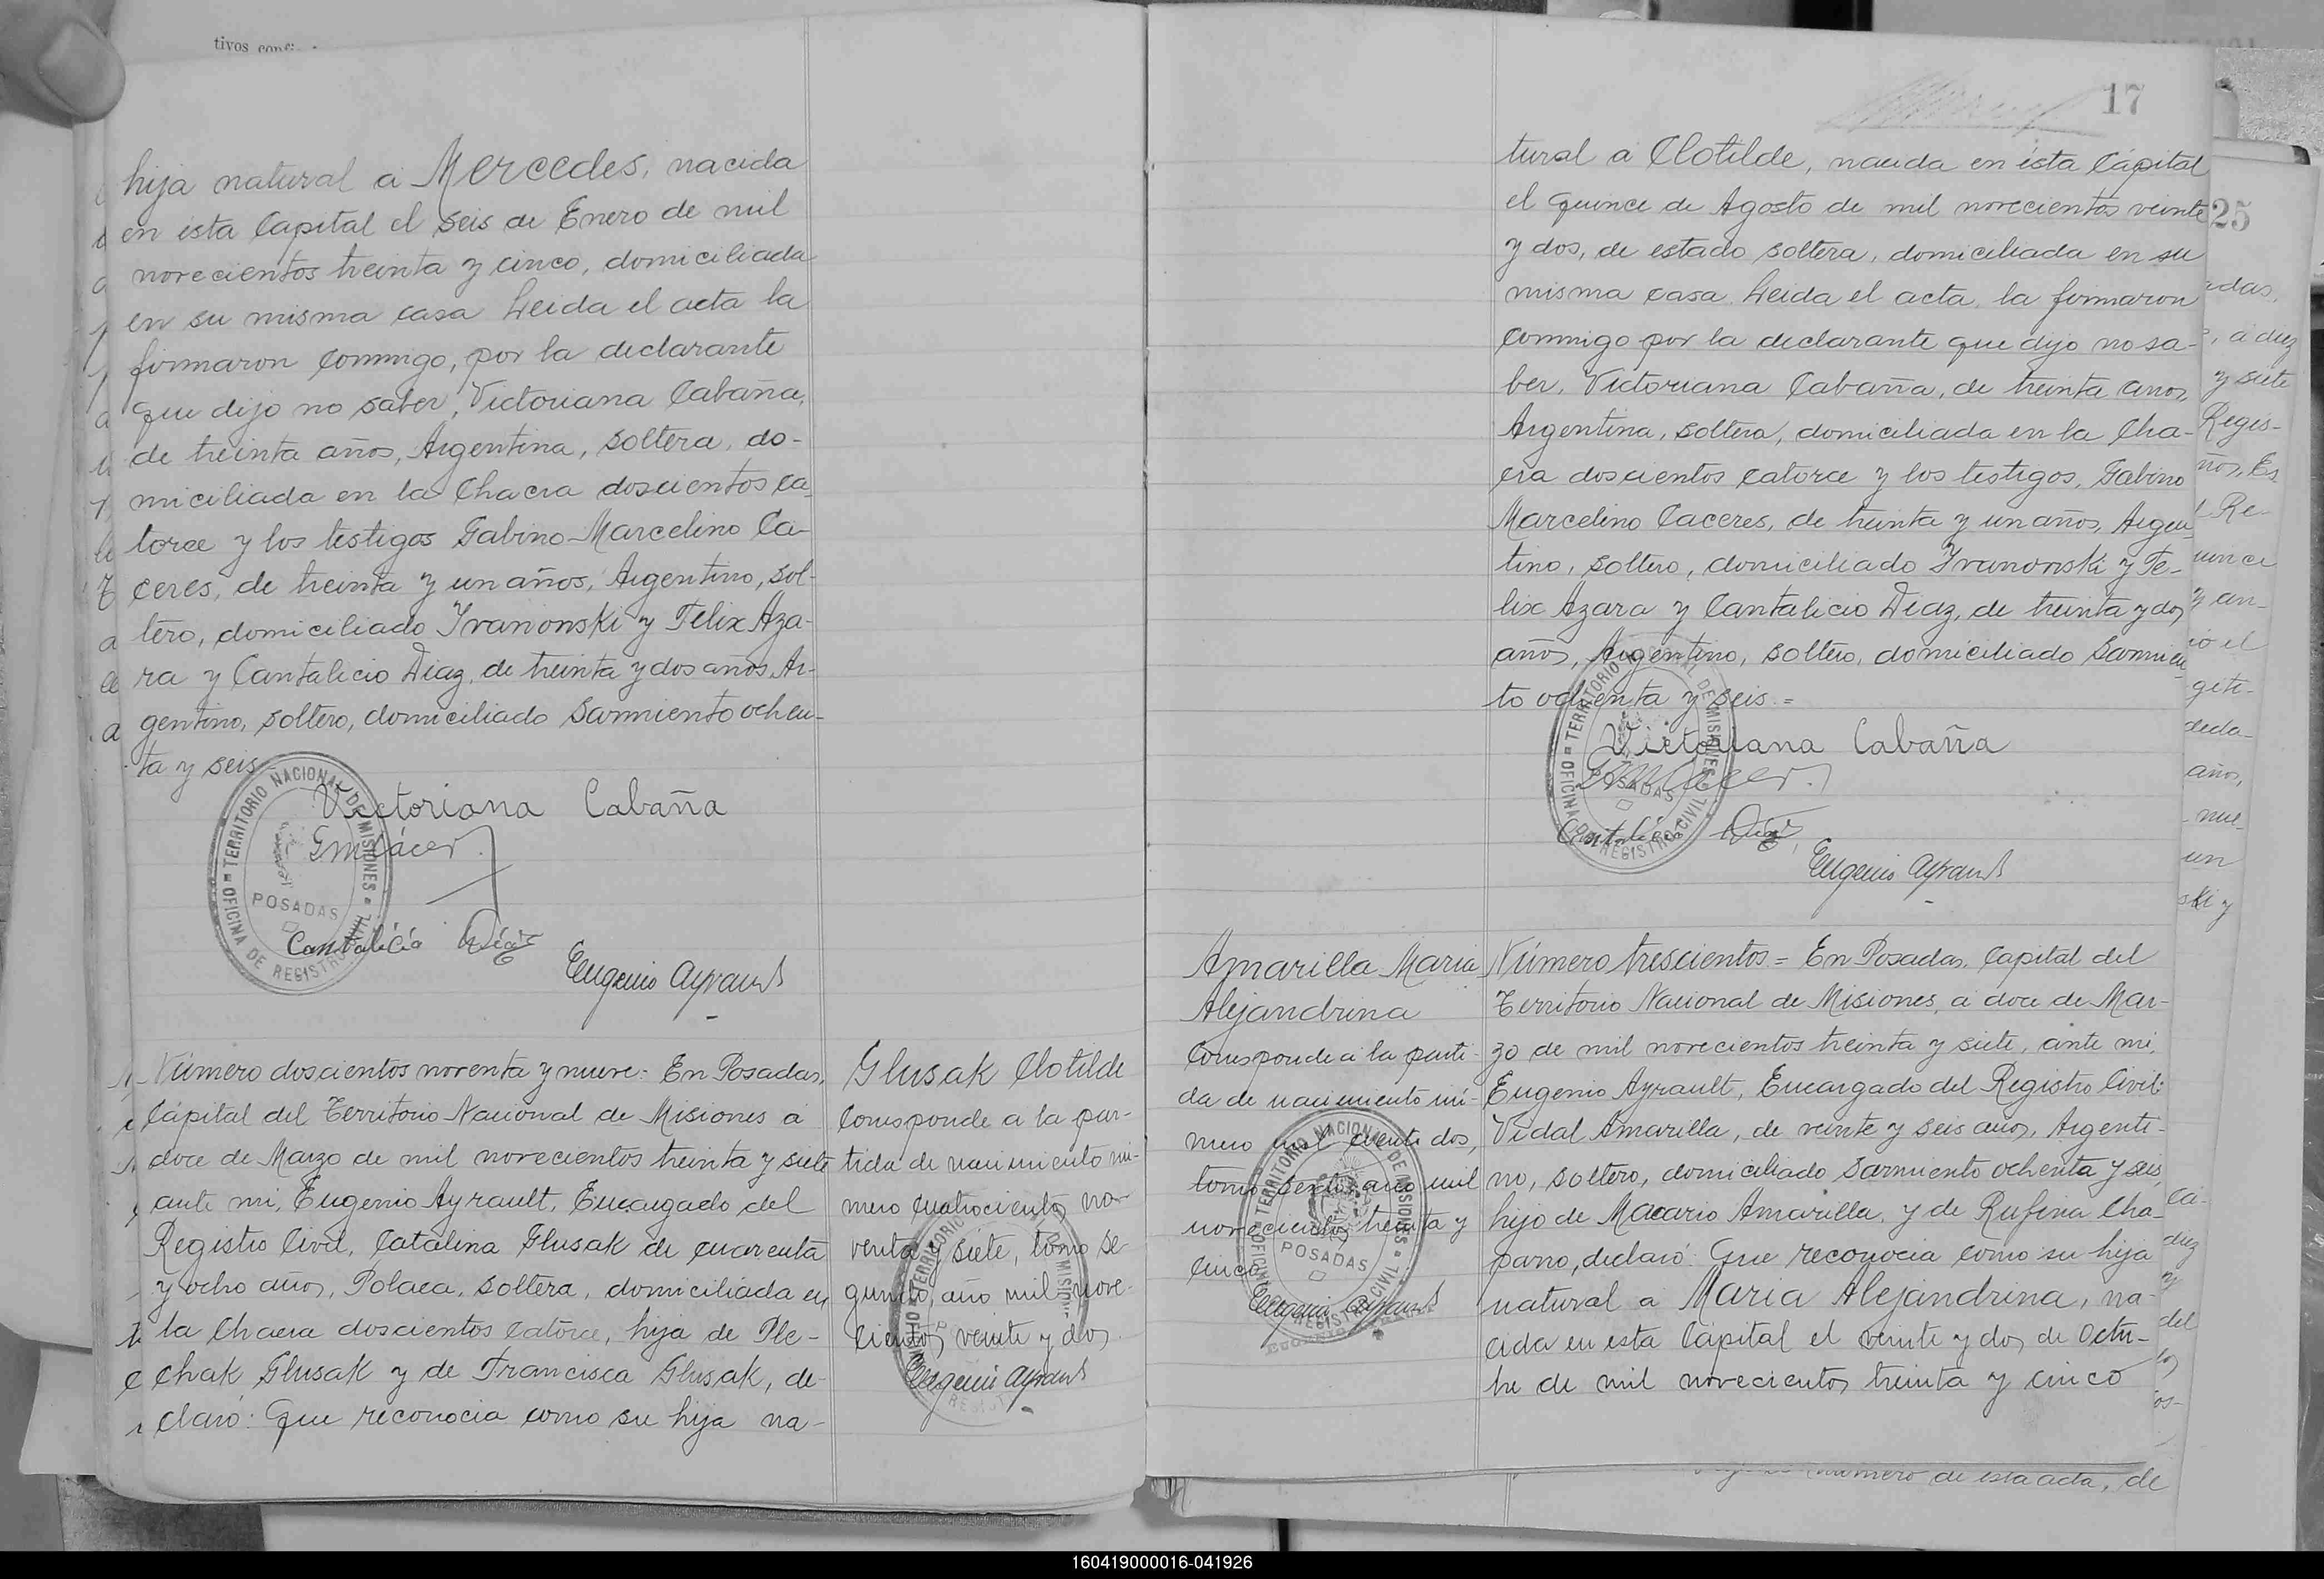 hija natural a Mercedes, nacida
en ésta Capital el seis de Enero de mil
novecientos treinta y cinco, domiciliada
en su misma casa Leida el acta la
firmaron conmigo, por la declarante
que dijo no saber, Victoriana Cabaña,
de treinta años, Argentina, soltera, do-
miciliada en la Chacra doscientos ca-
torce y los testigos Gabino Marcelino Ca-
ceres, de treinta y un años, Argentino, sol-
tero, domiciliado Ivanonski y Felix Aza-
ra y Cantalicio Diaz, de treinta y dos años, Ar-
gentino, soltero, domiciliado Sarmiento ochen-
ta y seis
Victoriana Cabaña
GMCácer
Cantalicio Díaz
Eugenio Ayrault
TERRITORIO NACIONAL DE MISIONES
OFICINA DE REGISTRO CIVIL
POSADAS
Número doscientos noventa y nueve = En Posadas,
Cápital del Territorio Nacional de Misiones a
doce de Marzo de mil novecientos treinta y siete
ante mi, Eugenio Ayrault, Encargado del
Registro Civil, Catalina Glusak de cuarenta
y ocho años, Polaca, soltera, domiciliada en
la Chacra doscientos catorce, hija de Ple-
chak Glusak y de Francisca Glusak, de-
claró: Que reconocia como su hija na-
Glusak Clotilde
Corresponde a la par-
tida de nacimiento nú-
mero cuatrocientos no-
venta y siete, tomo se-
gundo, año mil nove-
cientos veinte y dos
Eugenio Ayrault
17
tural a Clotilde, nacida en ésta Cápital
el quince de Agosto de mil novecientos veinte
y dos, de estado soltera, domiciliada en su
misma casa. Leida el acta, la firmaron
conmigo por la declarante que dijo no sa-
ber, Victoriana Cabaña, de treinta años,
Argentina, soltera, domiciliada en la Cha-
cra doscientos catorce y los testigos, Gabino
Marcelino Caceres, de treinta y un años, Argen-
tino, soltero, domiciliado Ivanonski y Fe-
lix Azara y Cantalicio Diaz, de treinta y dos
años, Argentino, soltero, domiciliado Sarmien-
to ochenta y seis =
Victoriana Cabaña
Cantalicio Díaz
Eugenio Ayrault
TERRITORIO NACIONAL DE MISIONES
OFICINA DE REGISTRO CIVIL
POSADAS
Amarilla Maria
Alejandrina
Corresponde a la parti-
da de nacimiento nú-
mero mil ciento dos,
tomo sexto, año mil
novecientos treinta y
cinco
Eugenio Ayrault
TERRITORIO NACIONAL DE MISIONES
OFICINA DE REGISTRO CIVIL
POSADAS
Número trescientos = En Posadas, Capital del
Territorio Nacional de Misiones, a doce de Mar-
zo de mil novecientos treinta y siete, ante mi,
Eugenio Ayrault, Encargado del Registro Civil:
Vidal Amarilla, de veinte y seis años, Argenti-
no, soltero, domiciliado Sarmiento ochenta y seis,
hijo de Macario Amarilla, y de Rufina Cha-
parro, declaró: Que reconocia como su hija
natural a Maria Alejandrina, na-
cida en esta Cápital el veinte y dos de Octu-
bre de mil novecientos treinta y cinco
25
y siete
Regis-
años,
ski y
número de esta acta, de
160419000016-041926